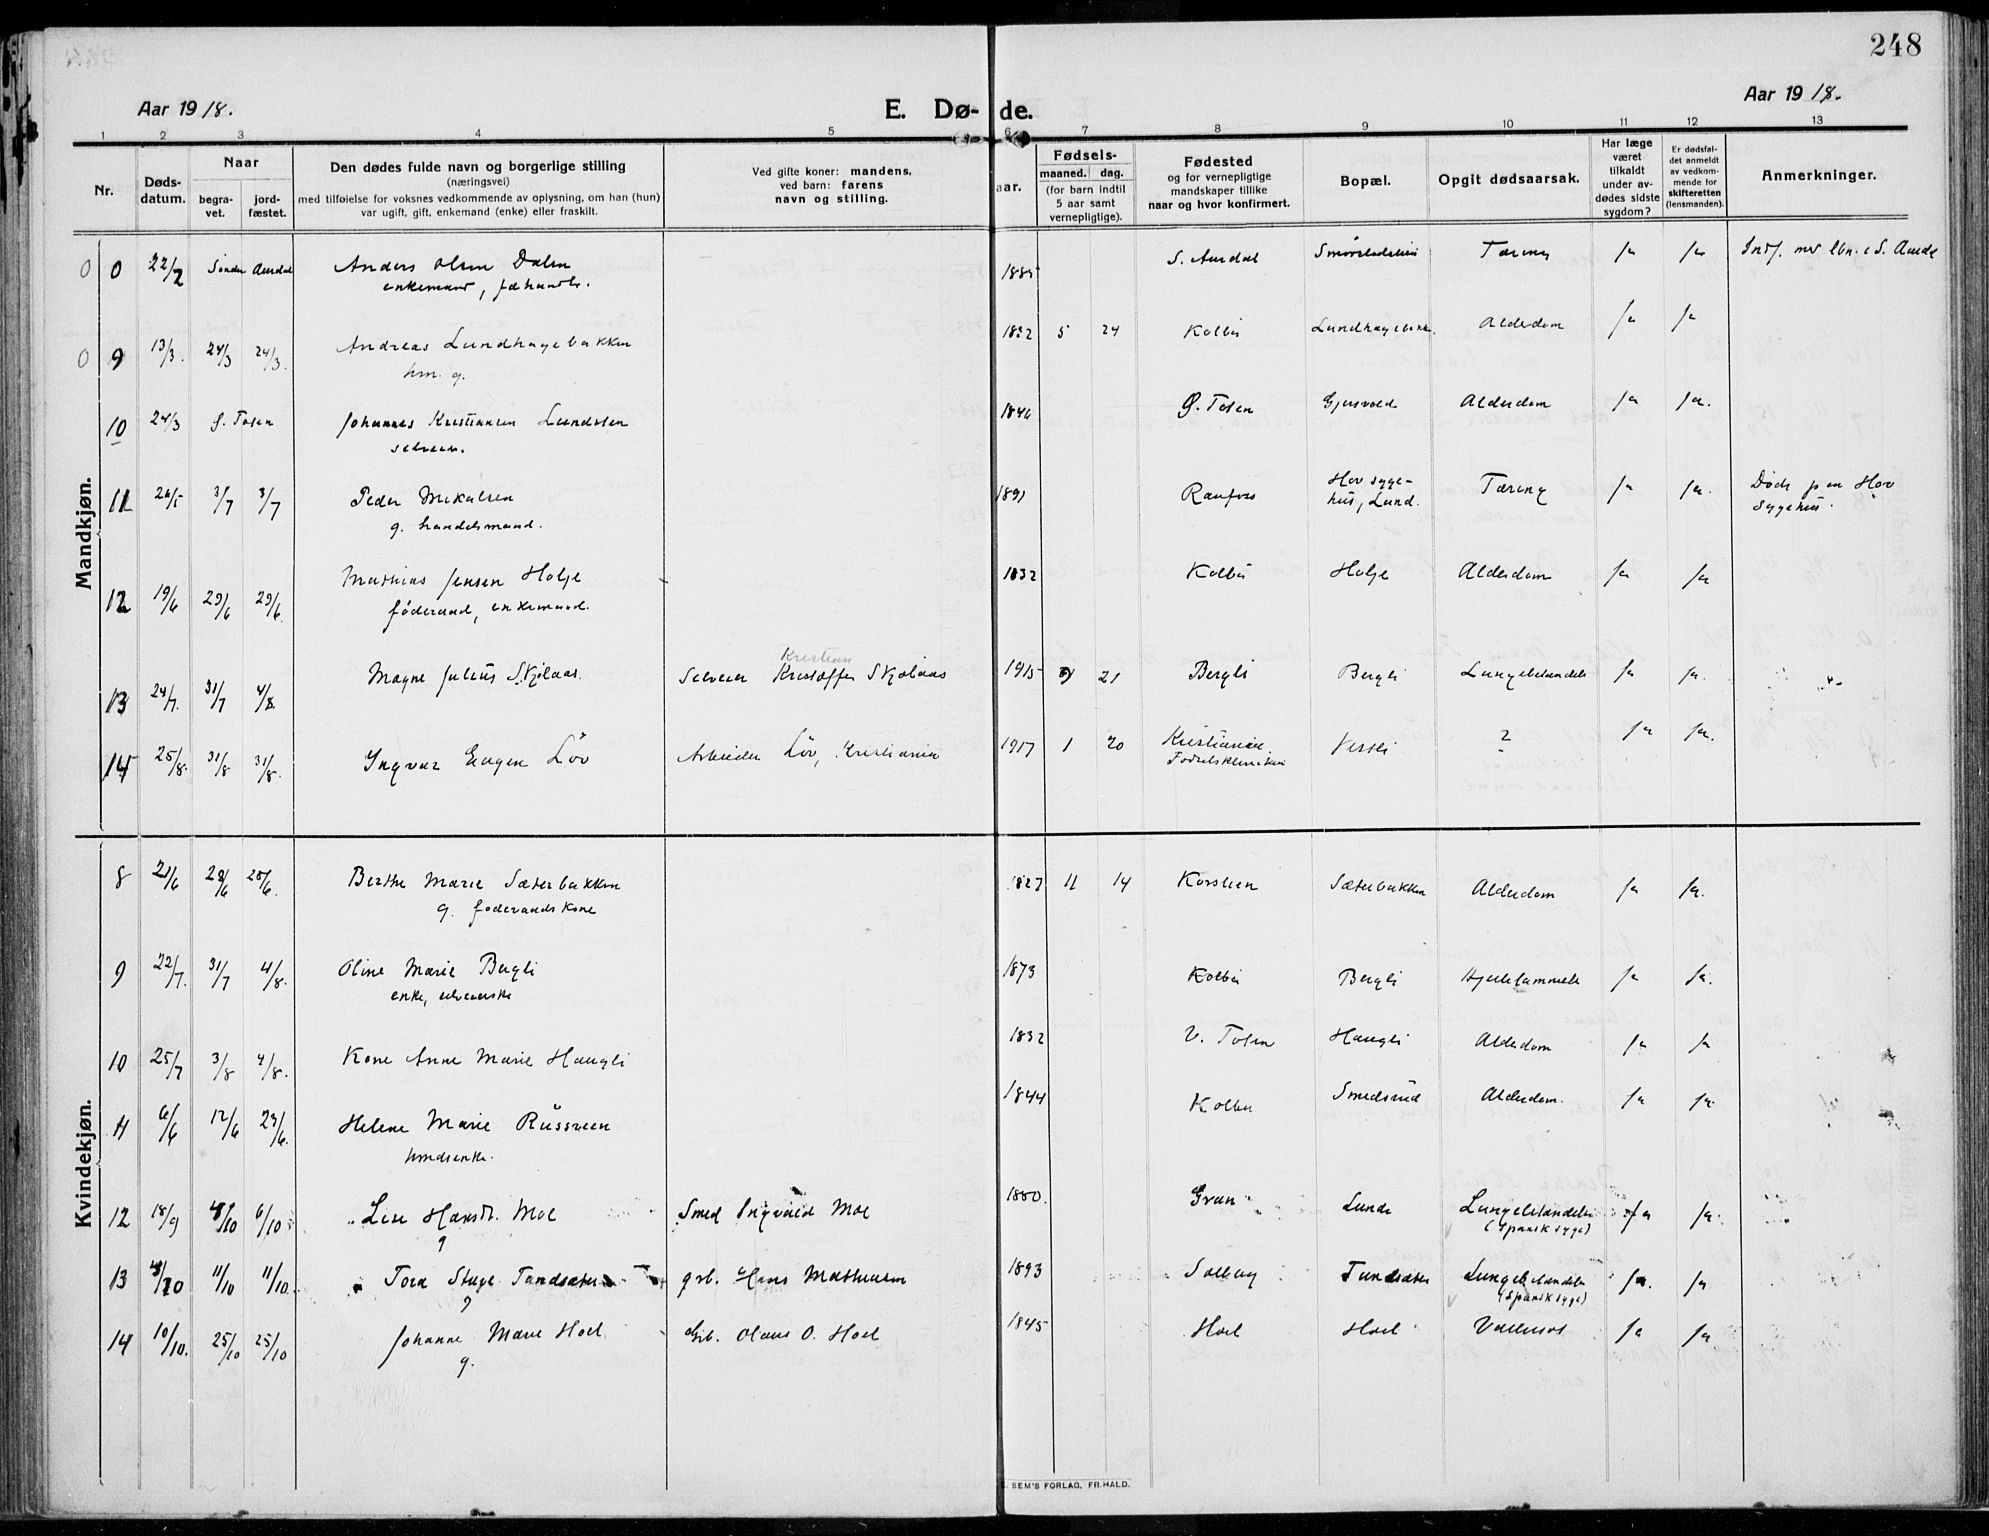 248
Aar 1918.
E. Dø-de.
Aar 1918.
1 2 3 4 5 6 7 8 9 10 11 12 13
Nr.
Døds-
datum.
Naar
begra-
vet.
jord-
fæstet.
Den dødes fulde navn og borgerlige stilling
(næringsvei)
med tilføielse for voksnes vedkommende av oplysning, om han (hun)
var ugift, gift, enkemand (enke) eller fraskilt.
Ved gifte koner: mandens,
ved barn: farens
navn og stilling.
aar.
Fødsels-
maaned. dag.
(for barn indtil
5 aar samt
vernepligtige).
Fødested
og for vernepligtige
mandskaper tillike
naar og hvor konfirmert.
Bopæl.
Opgit dødsaarsak.
Har læge
været
tilkaldt
under av-
dødes sidste
sygdom?
Er dødsfal-
det anmeldt
av vedkom-
mende for
skifteretten
(lensmanden).
Anmerkninger.
Mandkjøn.
0 0 22/2 Søndre Aurdal Anders Olsen Dalen 1885 S. Aurdal Tæring ja ja
enkemand, fæhandler.
0 9 13/3. 24/3 24/3. Andreas Lundhagebakken 1832 5 24 Kolbu Lundhagebakken Alderdom ja ja
hm. g.
10 24/3 Ø. Toten Johannes Kristiansen Lundsten 1846 Ø. Toten Gjersvold Alderdom ja ja.
selveier.
11 26/5 3/7 3/7 Peder Mikalsen 1891 Raufoss Hov syge-
hus, Lund. Tæring ja ja. Døde paa Hov
Sygehus.
g. handelsmand.
12 19/6 29/6 29/6. Mathias Jensen Holje 1832 Kolbu Holje Alderdom ja ja
føderaad, enkemand.
13 24/7. 31/7 4/8. Magne Julius Skjølaas. Selveier Kristoffer Skjølaas 1915 21 Bergli Bergli Lungebetændelse ja ja.
Kristian
14 25/8. 31/8 31/8. Ingvar Eugen Löv Arbeider Löv, Kristiania 1917 1 20 Kristiania. Vessli ? ja ja.
Fødselsklinikken
Kvindekjøn.
8 21/6 28/6 28/6. Berthe Marie Sæterbakken 1827 11 14 Korsveien Sæterbakken Alderdom ja ja.
g. føderaads kone
9 22/7. 31/7 4/8. Oline Marie Bergli 1873 Kolbu Bergli Hjertelammelse ja ja.
enke, selveierske
10 25/7 3/8 4/8. Kone Anne Marie Haugli 1832 V. Toten Haugli Alderdom ja ja
11 6/6 12/6 23/6. Helene Marie Russveen 1844 Kolbu Smedsrud Alderdom. ja ja.
hmdsenke.
12 18/9 4/10 6/10 Lise Hansdr. Moe Smed Ingvald Moe 1880. Gran Lunde Lungebetændelse ja ja.
g (Spansk syge)
13 4/10 11/10 11/10. Tora Stage Tandsæter grb. Hans Mathiasen 1893 Solberg Tandsæter Lungebetændelse ja. ja
g (Spansk syge)
14 10/10. 25/10 25/10 Johanne Marie Hoel Grb. Olaus O. Hoel 1845 Hoel Hoel Vattersot ja ja.
g.
SEM'S FORLAG, FR.HALD.